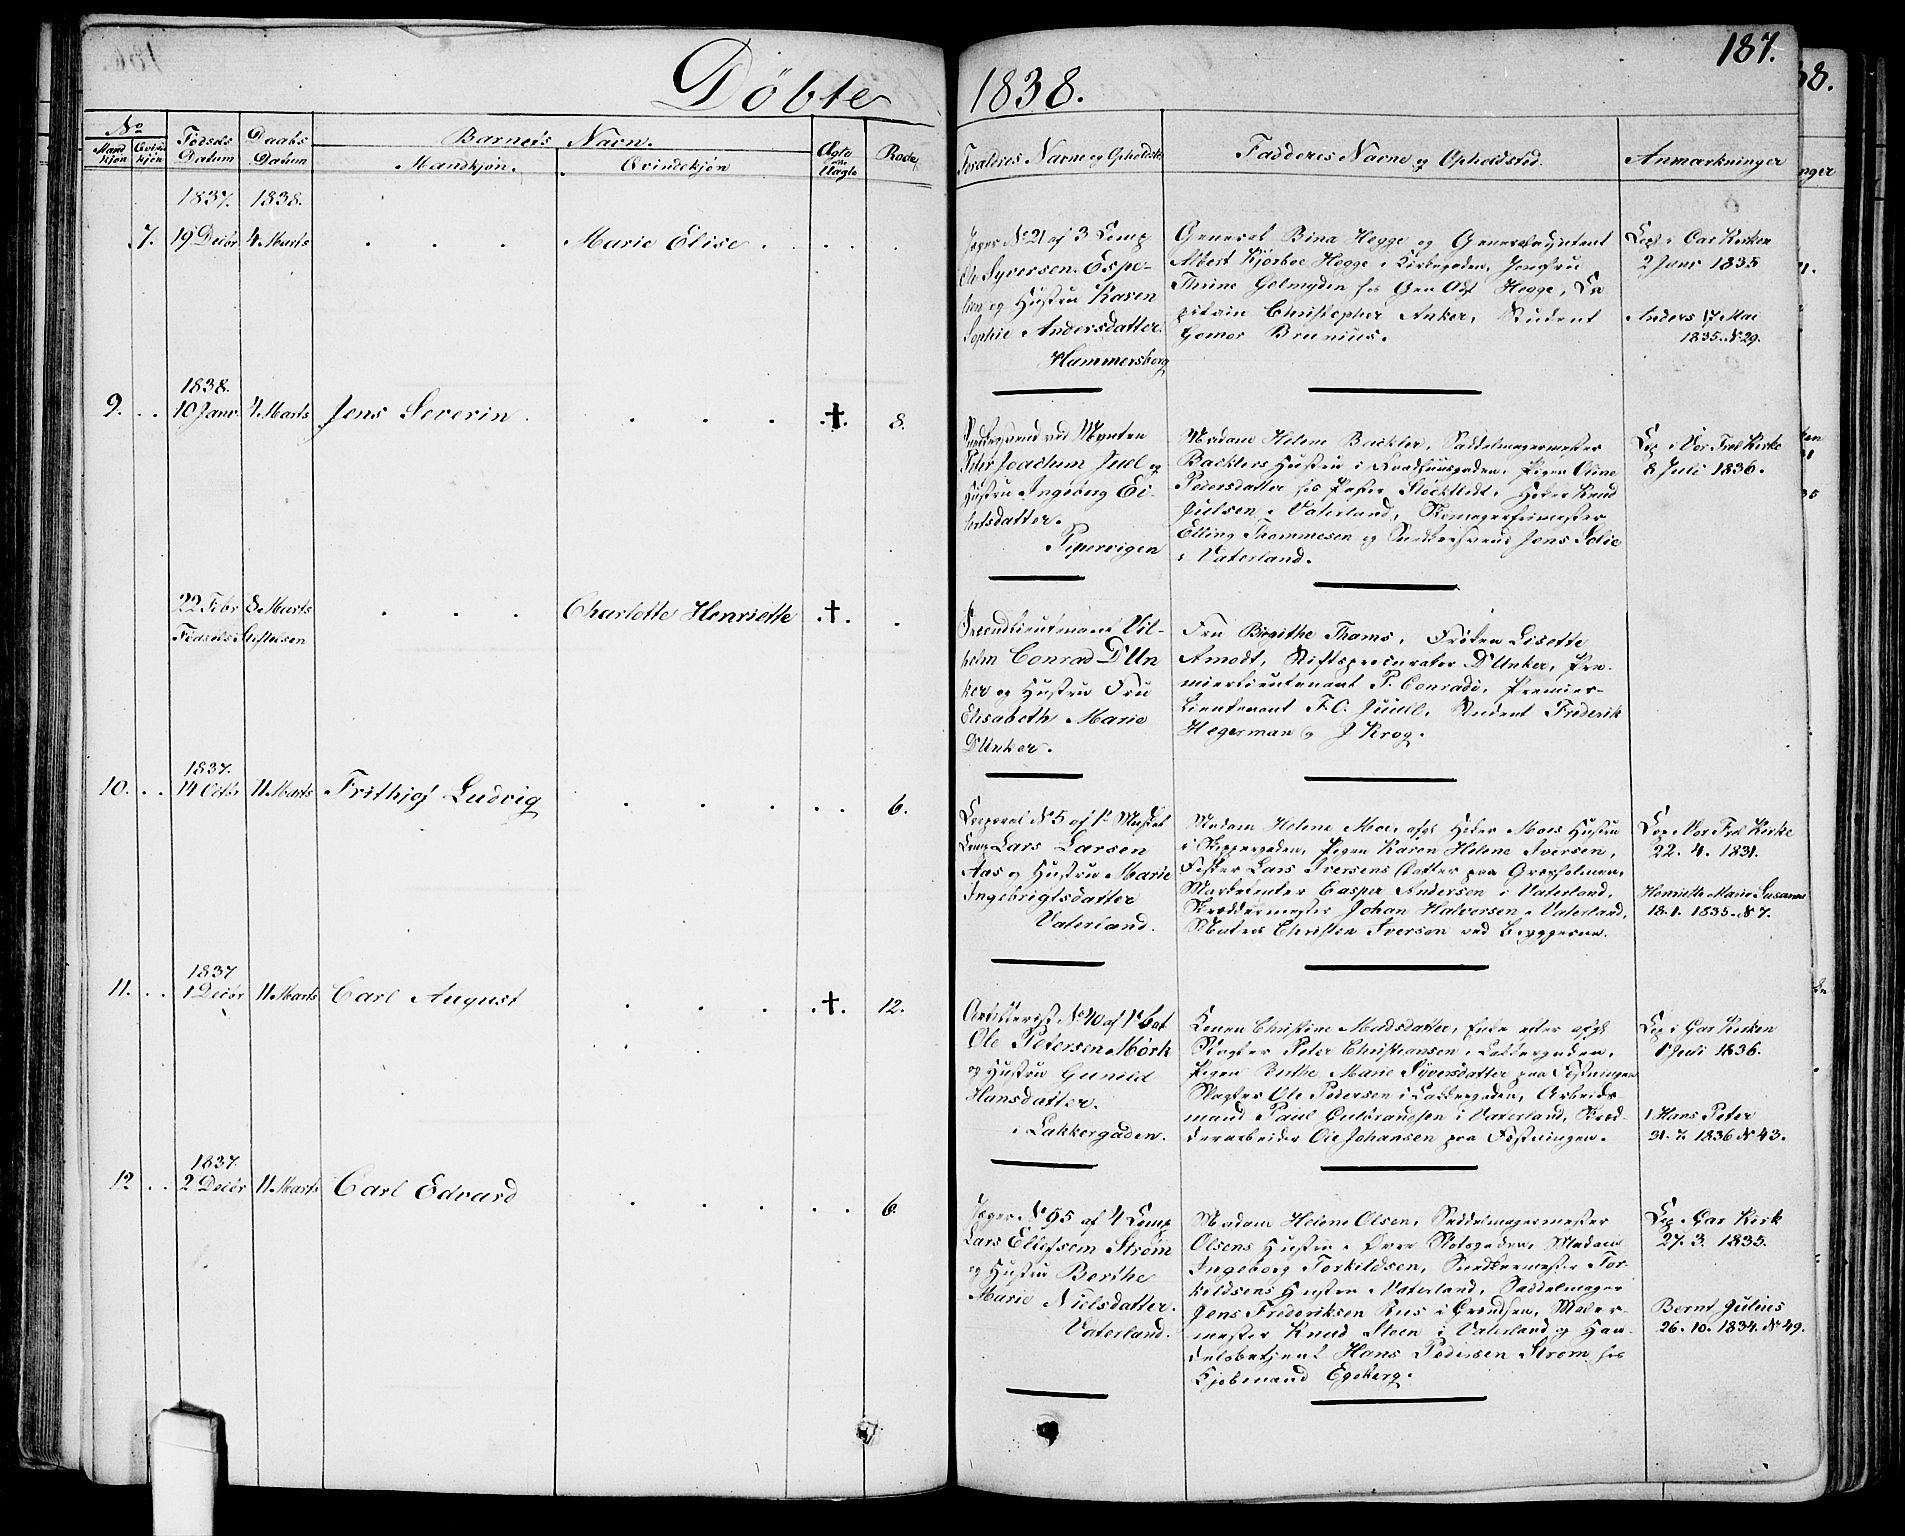 187.
Döbte 1838.
No
Mand kjön
Qvinde kjön
Födsels Datum
Daabs Datum
Barnets Navn.
Mandkjön.
Qvindekjön
Ægte Uægte
Rode
Forældres Navne og Opholdsted
Faddernes Navne og Opholdsted.
Anmærkninger
1837. 1838.
7. 19 Decbr 4 Marts Marie Elise
Jæger No 21 af 3 Comp
Ole Syversen Espe-
og Hustru Karen
Sophie Andersdatter.
Hammersborg
General Bina Hegge og
Albert Hegge i Kirkegaden, Jomfru
Thrine Golmyden hos Hegge, Ca
pitain Christopher Anker, Student
Gomor Brunius.
Cop. i Gar Kirken
2 Janr 1835
Anders 17 Mai
1835. No 29.
1838.
9. 10 Janr 4 Marts Jens Severin † 8.
ved Mynten
Peter Joachum Juel og
Hustru Ingeborg Ei-
lertsdatter.
Pipervigen
Madam Helene Backler, Saddelmagermester
Backlers Hustru i Pigen Oline
Pedersdatter hos Pastor Stockfledt,
i Vaterland,
Elling Thommesen og Jens Solie
i Vaterland.
Cop. i Vor Frel Kirke
8 Juli 1836.
22 Febr 8 Marts Charlotte Henriette †
Födsels Stiftelsen
Secondlieutenant Vil-
helm Conrad D'Un
ker og Hustru Fru
Elisabeth Marie
D'Unker.
Fru Birgithe Thams, Fröken Lisette
Amodt, Stiftsprocurator D'Unker, Pre-
mierlieutenant P. Conradi, Premier-
Lieutenant F. C. Juuel, Student Frederik
Hegerman og J Krog.
1837.
10. 14 Octb 11 Marts Frithjof Ludvig 6.
Corporal No 5 af
Comp Lars Larsen
Aas og Hustru Marie
Ingebrigtsdatter
Vaterland.
Madam Helene Moe, Moes Hustru
i Skippergaden, Pigen Karen Helene Iversen,
Fisker Lars Iversens Datter paa Græsholmen,
Marketenter Casper Andersen i Vaterland,
Skræddermester Johan Halvorsen i Vaterland,
Matros Christen Iversen ved Bryggerne.
Cop. i Vor Frel Kirke
22. 4. 1831.
Henriette Marie Susanne
18. 1. 1835. No 7.
1837
11. 1 Decbr 11 Marts Carl August † 12.
Artillerist No 40 af 1ste Bat
Ole Petersen Mörk
og Hustru Gunild
Hansdatter.
i Lakkergaden.
Konen Christine Madsdatter, Enke efter
Slagter Peter Christiansen i Lakkergaden,
Pigen Berthe Marie Syversdatter paa Fæstningen
Slagter Ole Pedersen i Lakkergaden, Arbeids-
mand Paul Gulbrandsen i Vaterland,
Ole Johansen paa Fæstningen.
Cop. i Gar Kirken
1 Juli 1836.
1 Hans Peter
31. 7. 1836 No 43.
1837.
12 2 Decbr 11 Marts Carl Edvard 6.
Jæger No 95 af 4 Comp
Lars Ellefsen Ström
og Hustru Berthe
Marie Nielsdatter.
Vaterland.
Madam Helene Olsen, Saddelmagermester
Olsens Hustru i Övre Slotsgaden, Madam
Ingeborg Torkildsen, Snedkermester Tor-
kildsens Hustru i Vaterland, Saddelmager
Jens Frederiksen Rus i Grændsen, Maler-
mester Knud Steen i Vaterland og Han-
delsbetjent Hans Pedersen Ström hos
Kjöbmand Egeberg.
Cop. i Gar Kirk
27. 3. 1835.
Bernt Julius
26. 10. 1834. No 49.